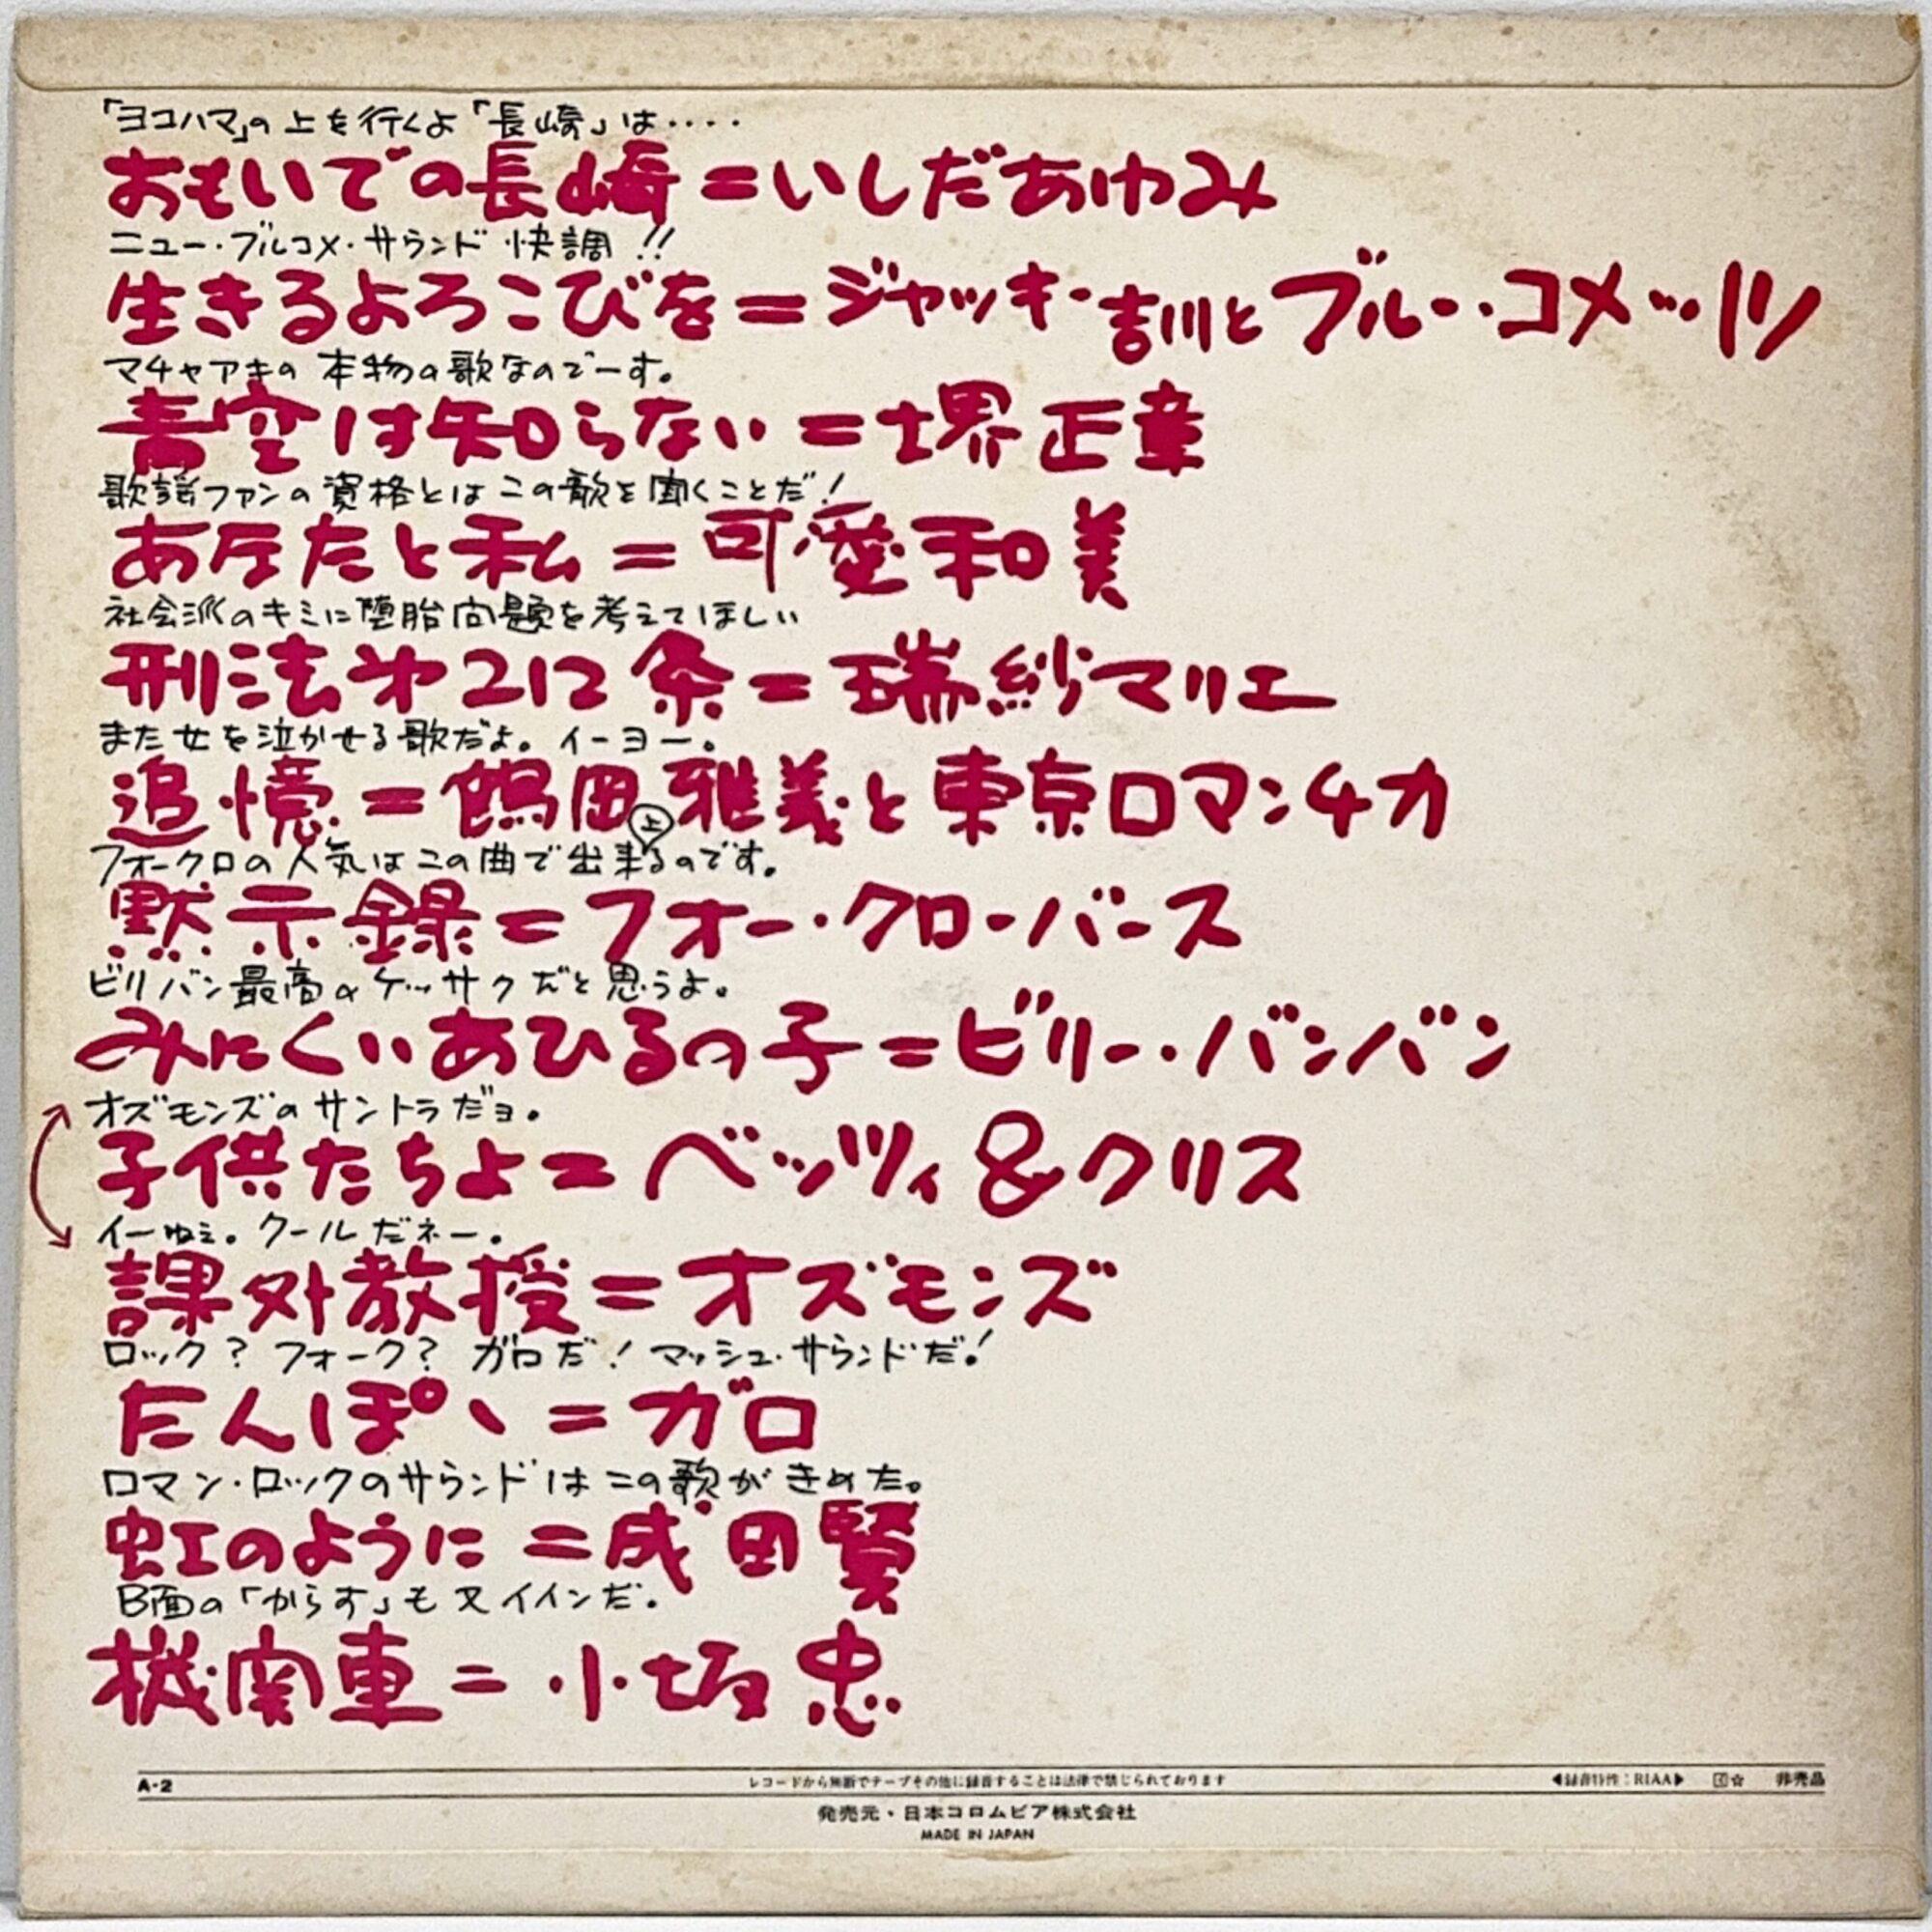 「ヨコハマ」の上を行くよ「長崎」は‥‥
おもいでの長崎=いしだあゆみ
ニュー・ブルコメ・サウンド快調!!
生きるよろこびを=ジャッキー吉川とブルー・コメッツ
マチャアキの本物の歌なのでーす。
青空は知らない=堺正章
歌謡ファンの資格とはこの歌を聞くことだ!
あなたと私=可愛和美
社会派のキミに堕胎問題を考えてほしい
刑法第212条=瑞紗マリエ
また女を泣かせる歌だよ。イーヨー。
追憶=鶴岡雅義と東京ロマンチカ
上
フォークロの人気はこの曲で出来るのです。
黙示録=フォー・クローバース
ビリバン最高のケッサクだと思うよ。
みにくいあひるの子=ビリー・バンバン
オズモンズのサントラだョ。
子供たちよ=ベッツィ&クリス
イーねぇ。クールだネー。
課外教授=オズモンズ
ロック?フォーク?ガロだ!マッシュ・サウンドだ!
たんぽゝ=ガロ
ロマン・ロックのサウンドはこの歌がきめた。
虹のように=成田賢
B面の「からす」も又イインだ。
機関車=小坂忠
A-2 レコードから無断でテープその他に録音することは法律で禁じられております ◀録音特性:RIAA▶ ☆ 非売品
発売元・日本コロムビア株式会社
MADE IN JAPAN